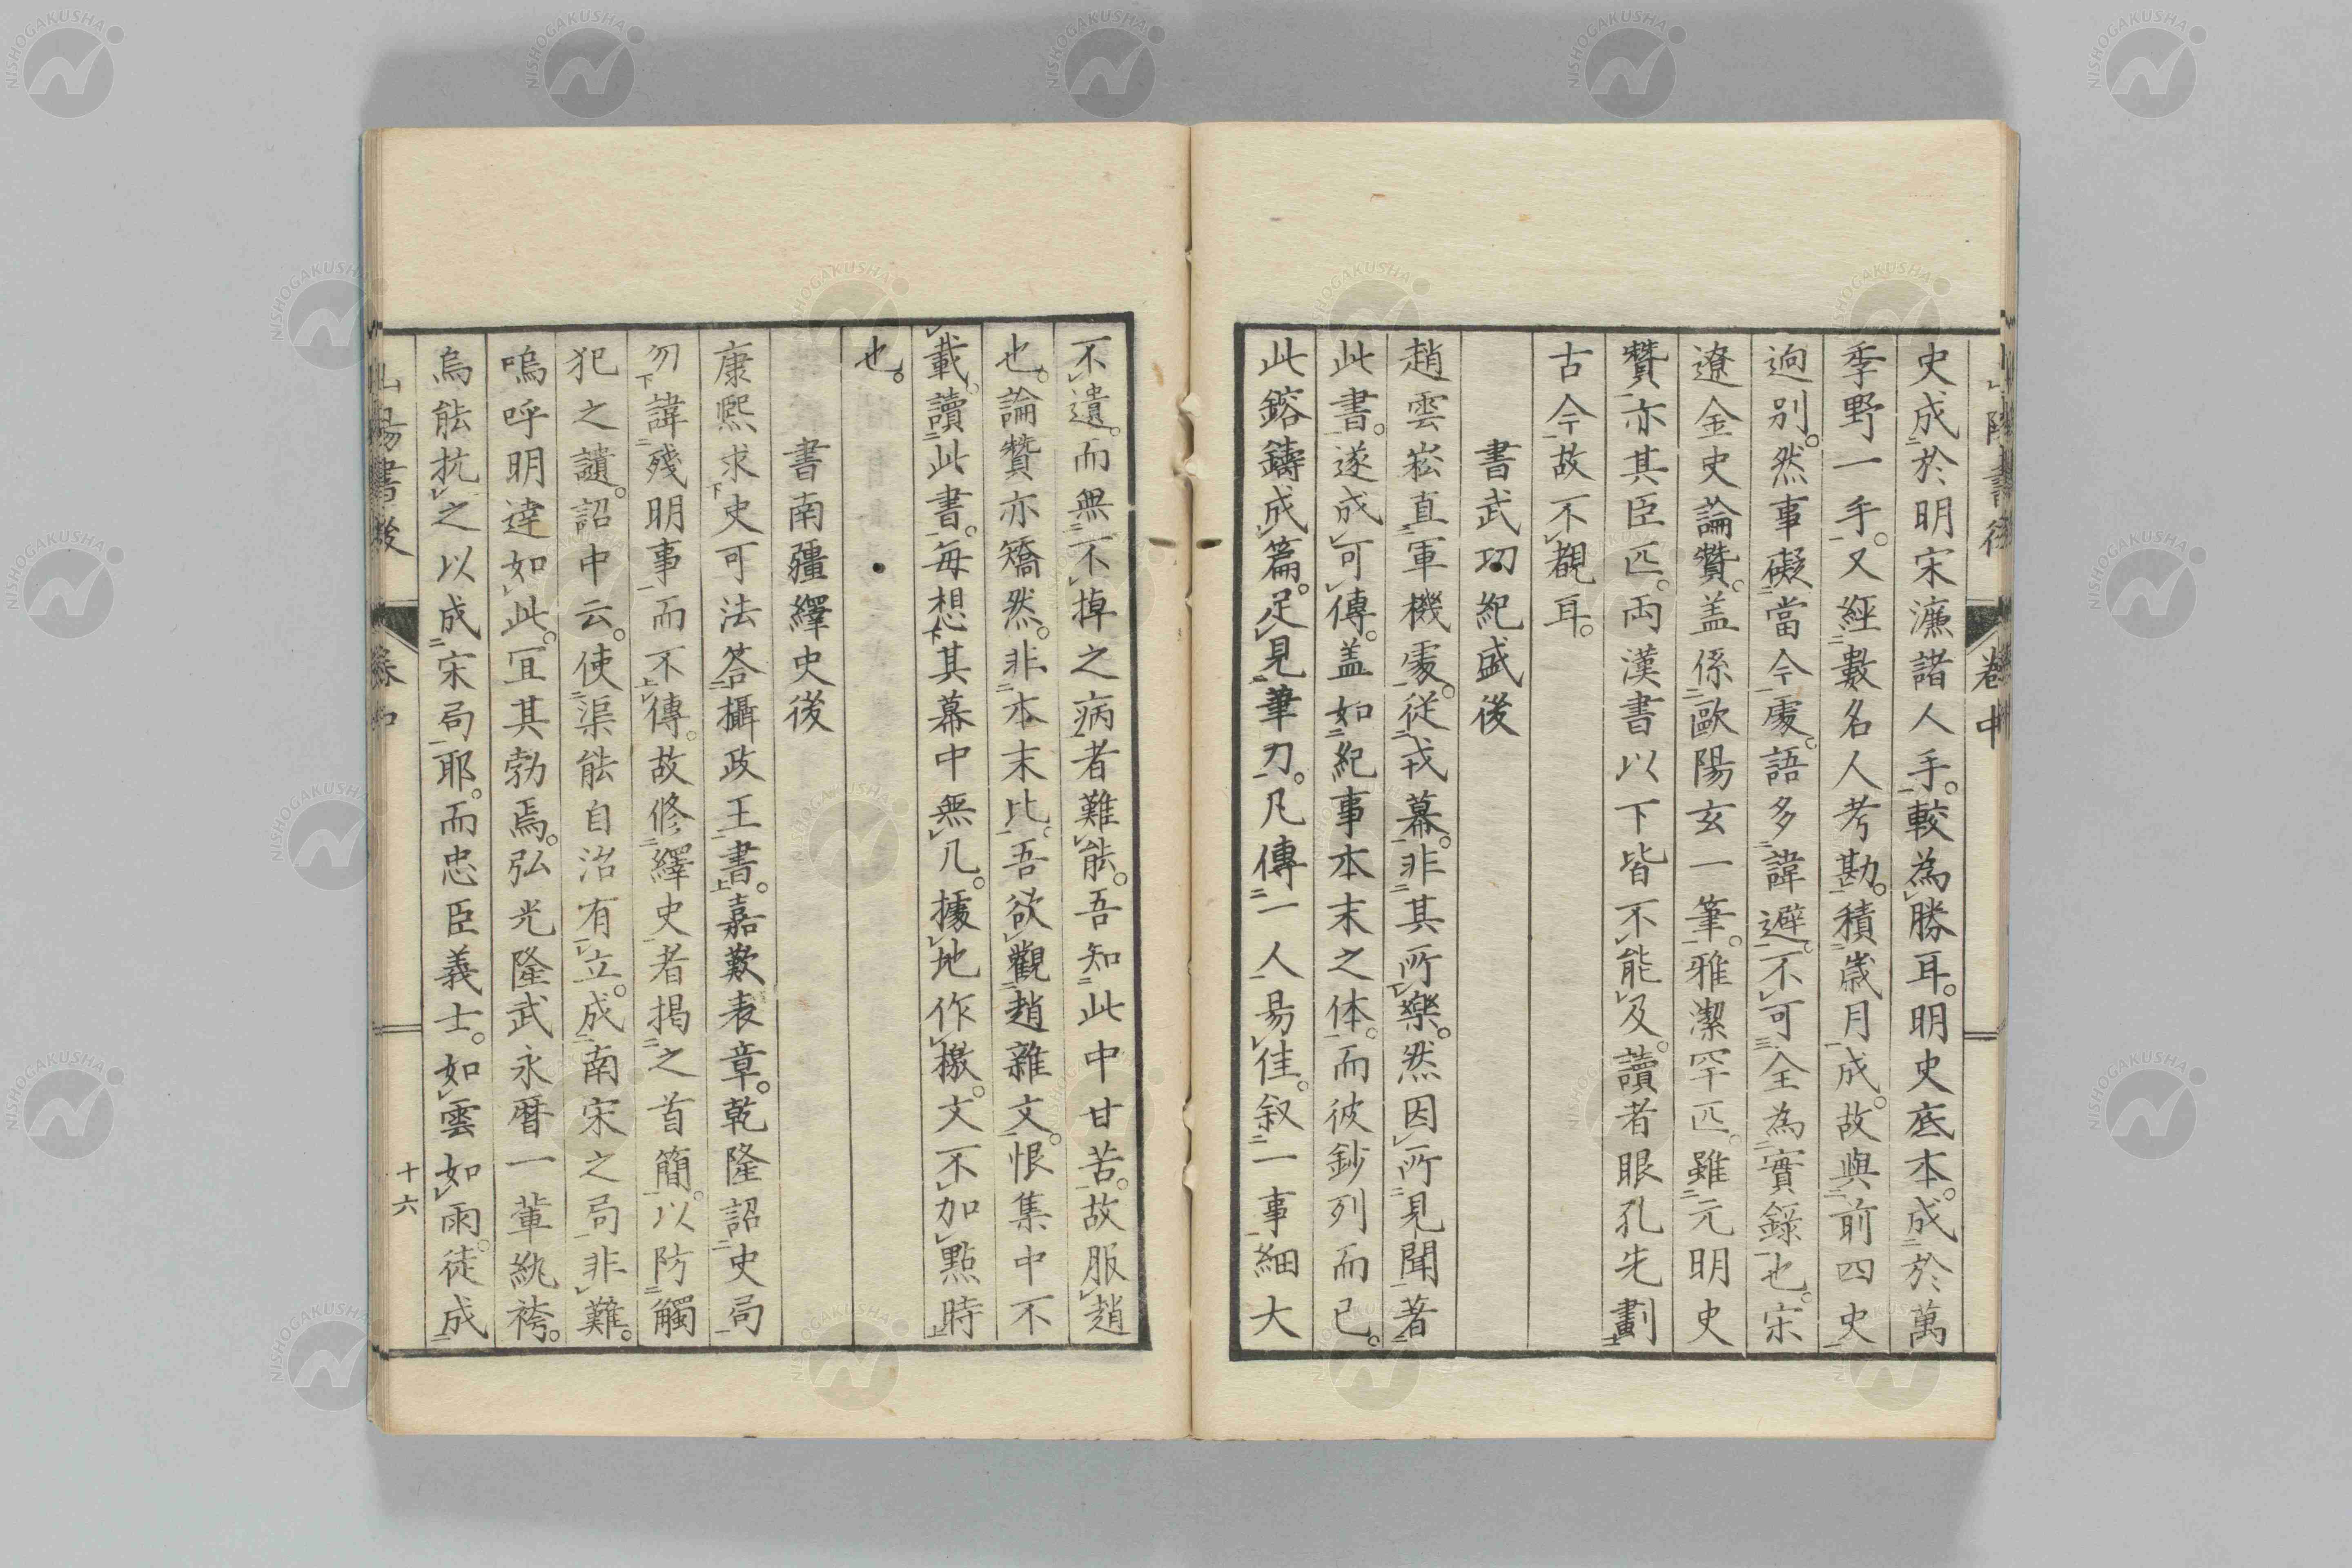 史成於明宋濂諸人手。較為勝耳。明史底本。成於萬
季野一手。又經數名人考勘。積歳月成。故與前四史
逈別。然事礙當今處。語多諱避。不可全為實錄也。宋
遼金史論贊。盖係歐陽玄一筆。雅潔罕匹。雖元明史
贊亦其臣匹。兩漢書以下皆不能及。讀者眼孔先劃
古今故不觀耳。
書武功紀盛後
趙雲崧直軍機處。從戎幕。非其所樂。然因所見聞著
此書。遂成可傳。盖如紀事本末之体。而彼鈔列而已。
此鎔鑄成篇。足見筆刀。凡傳一人易佳。叙一事細大
不遺。而無不掉之病者難能。吾知此中甘苦。故服趙
也。論贊亦矯然。非本末比。吾欲觀趙雜文。恨集中不
載。讀此書。每想其幕中無几。據地作檄。文不加點時
也。
書南疆繹史後
康熙求史可法答攝政王書。嘉歎表章。乾隆詔史局
勿諱殘明事而不傳。故修繹史者揭之首簡。以防觸
犯之譴。詔中云。使渠能自治有立。成南宋之局非難。
嗚呼明達如此。宜其勃焉。弘光隆武永曆一輩紈袴。
烏能抗之以成宋局耶。而忠臣義士。如雲如雨。徒成
卷中
十六
NISHOGAKUSHA